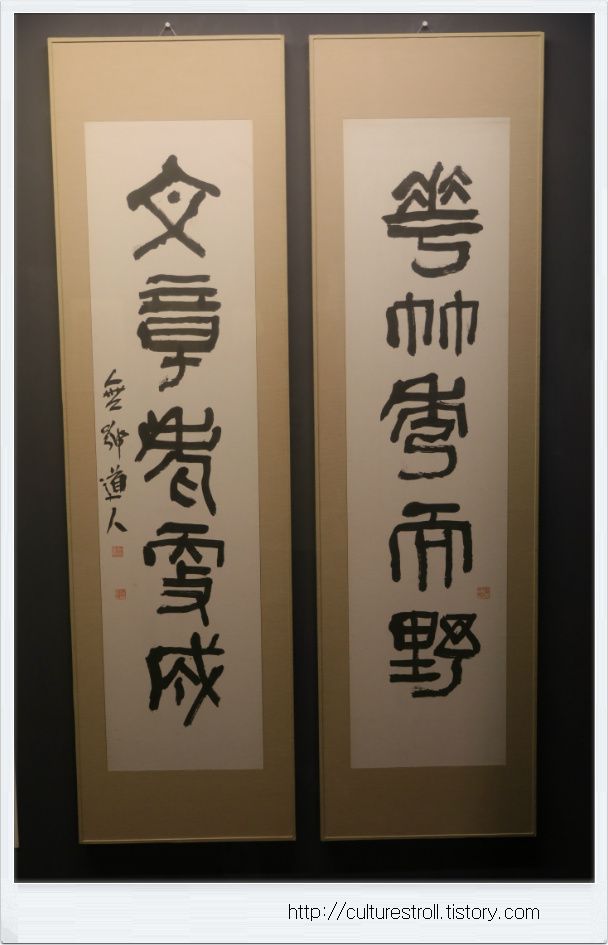 華竹秀而野
文章老更成
無號道人
http://culturestroll.tistory.com